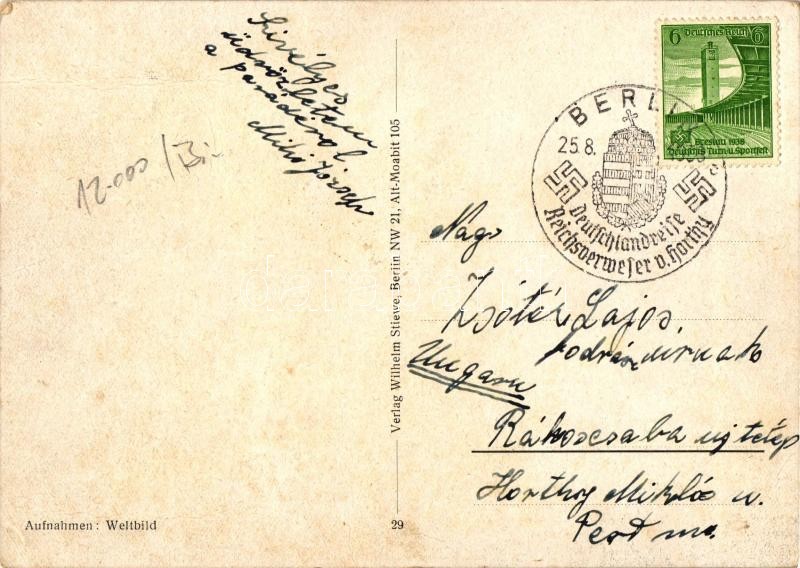 Szivélyes
üdvözletem
a parádéról
Mikó József
12.000 /Bi
Verlag Wilhelm Stiewe, Berlin NW 21, Alt-Moabit 105
29
Aufnahmen: Weltbild
6 Deutsches Reich 6
Breslau 1938
Deutsches Turn-u. Sportfest
BERLI
25.8.
Deutschlandreise
Reichsverweser v. Horthy
Nagys
Zsótér Lajos
fodrász urnak
Ungarn
Rákoscsaba ujtelep
Horthy Miklós u.
Pest m.